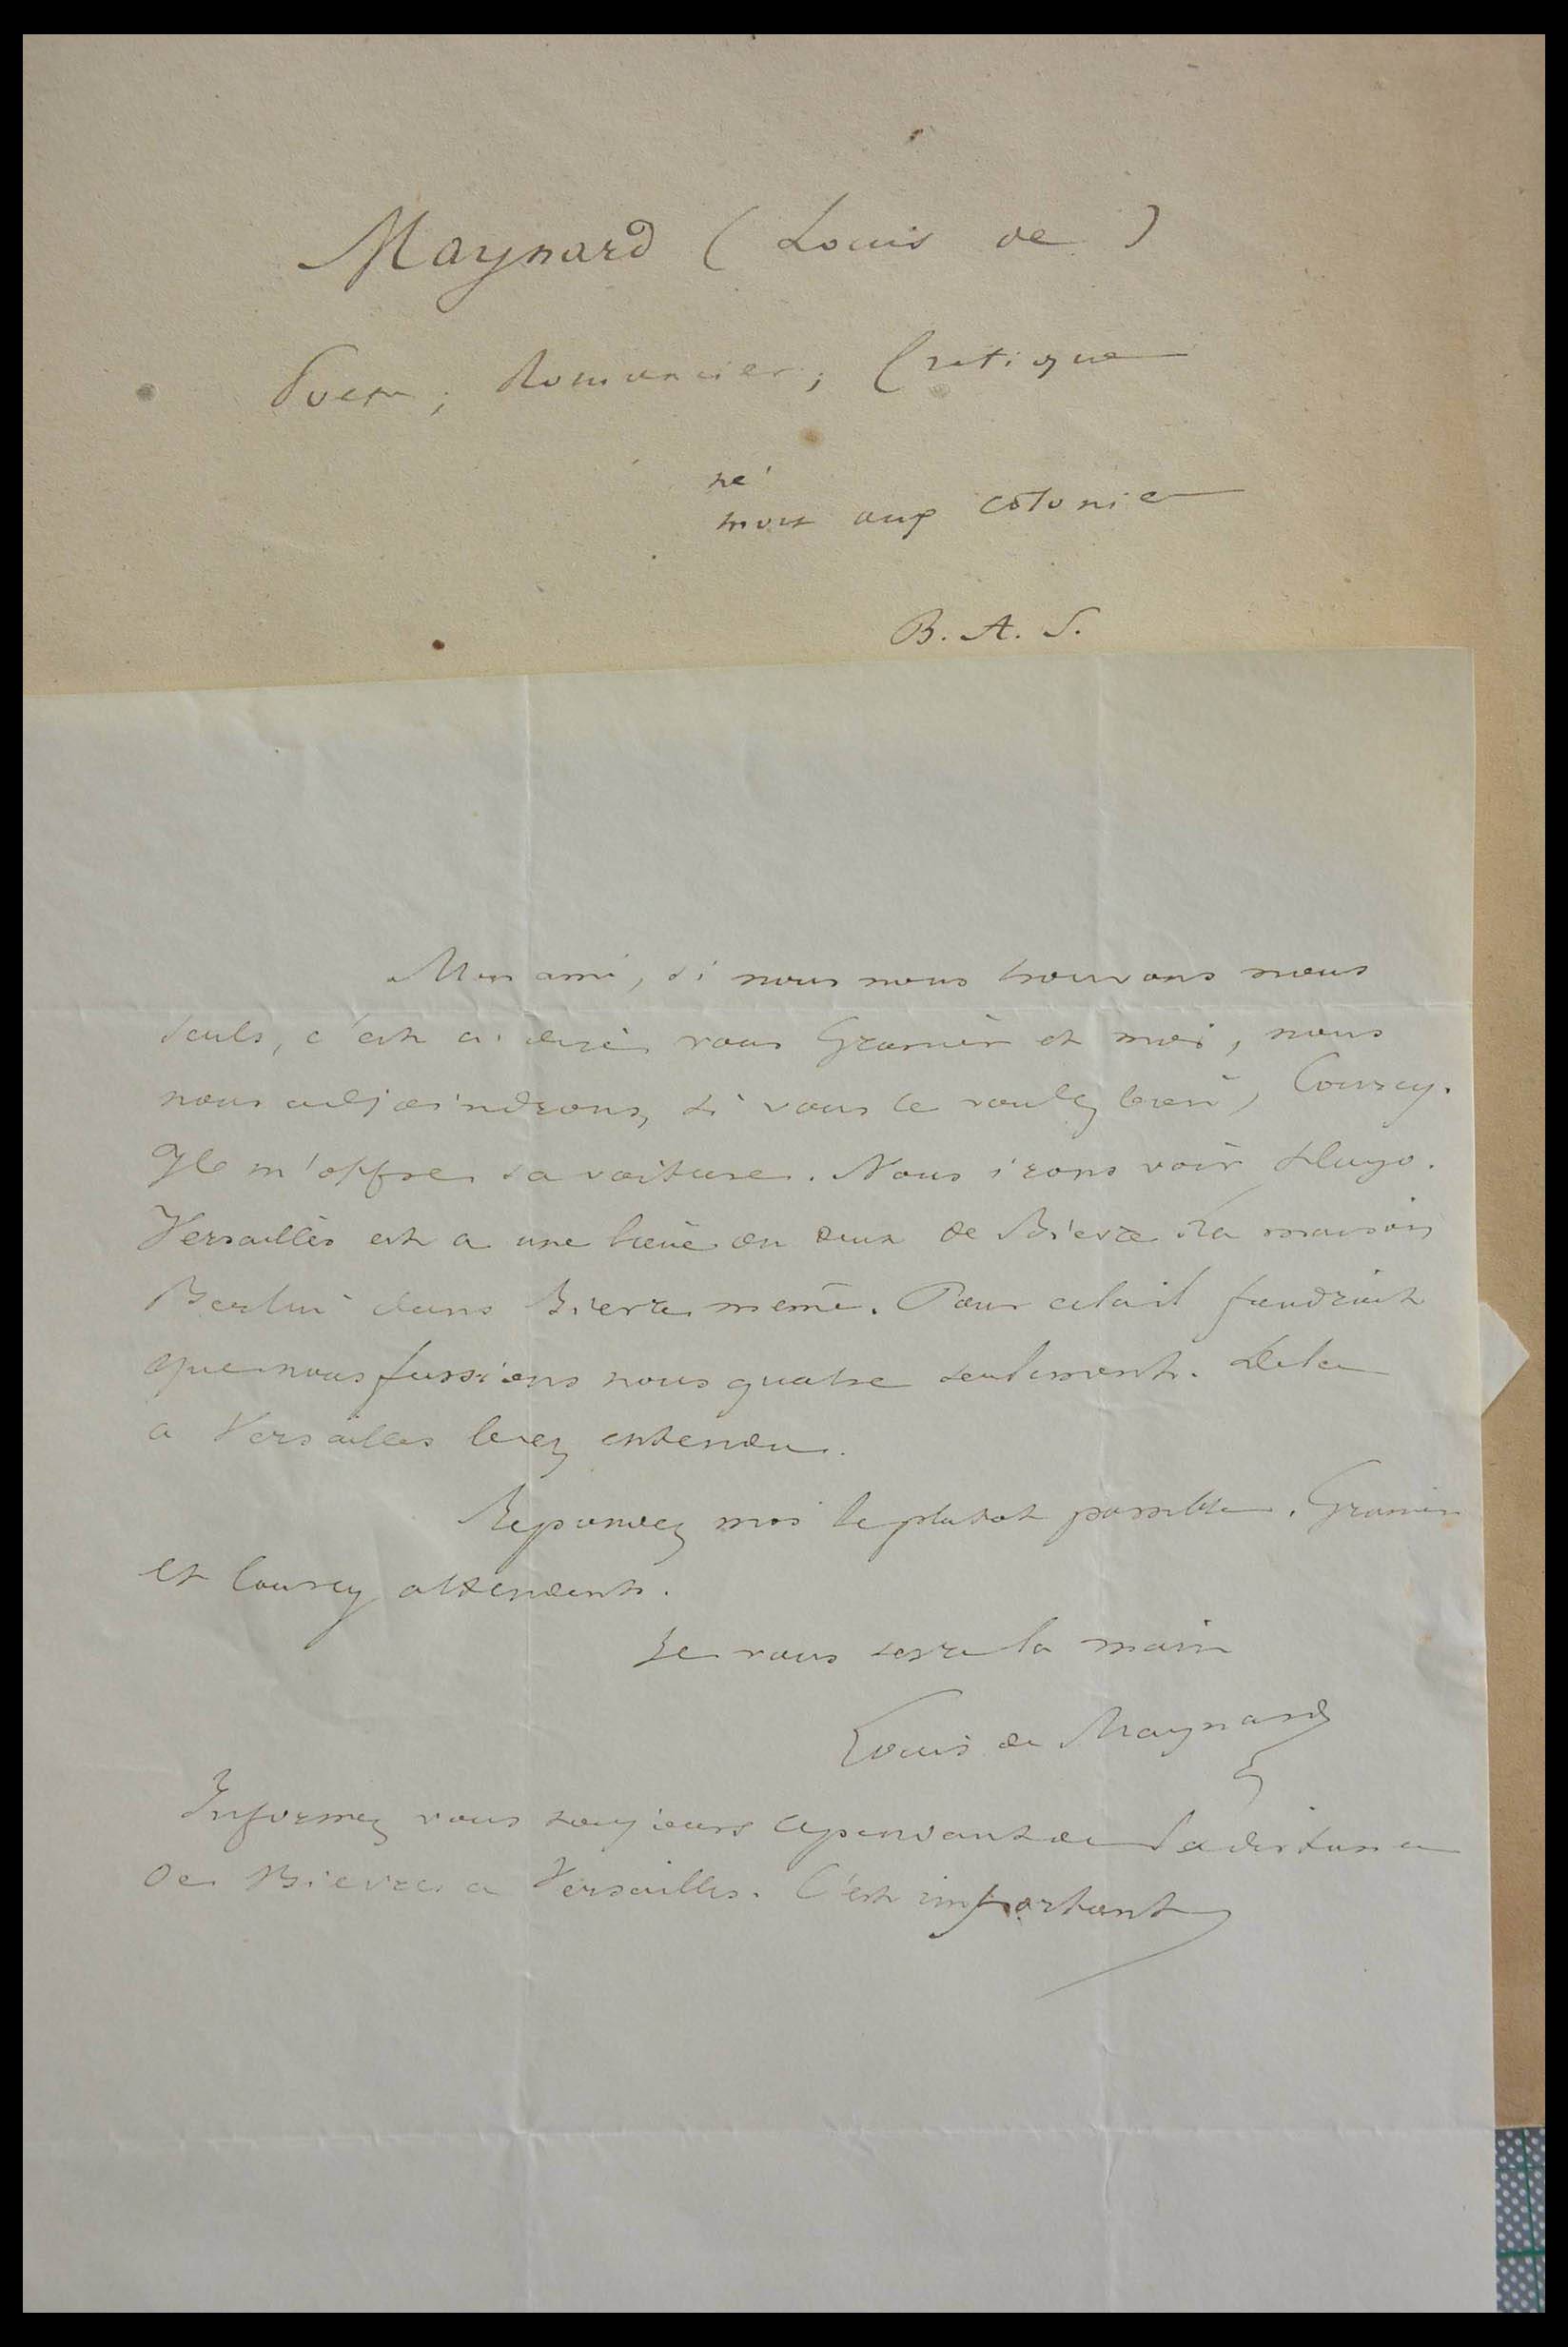 Maynard (Louis de)
Poete; Romancier; Critique
né
mort aux colonies
B. A. S.
Mon ami, si nous nous trouvons nous
seuls, c'est a dire vous Granier et moi, nous
nous adjoindrons, si vous le voulez bien, Courcy.
Il m'offre sa voiture. Nous irons voir Hugo.
Versailles est a une lieue ou deux de Bievre la maison
Bertin dans Bievre meme. Pour cela il faudroit
que nous fussions nous quatre seulement. De la
a Versailles bien entendu.
Repondez moi le plutot possible. Granier
et Courcy attendent.
Je vous serre la main
Louis de Maynard
Informez vous toujours cependant de la distance
de Bievre a Versailles. C'est important